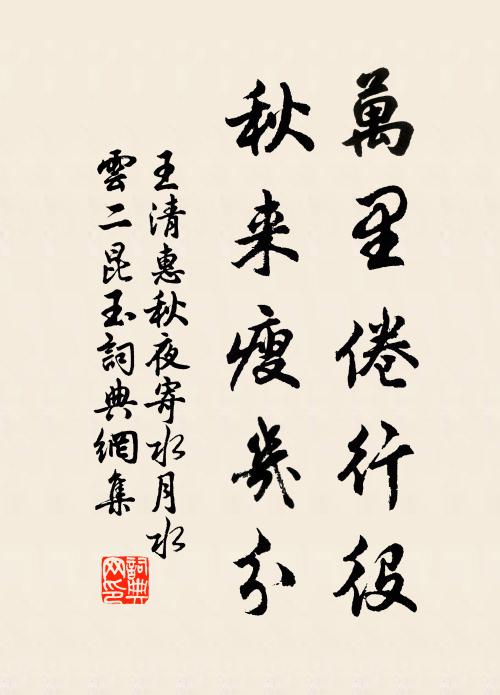 萬里倦行役
秋来瘦幾分
王清惠秋夜寄水月水
雲二昆玉詞典網集
詞典
网印